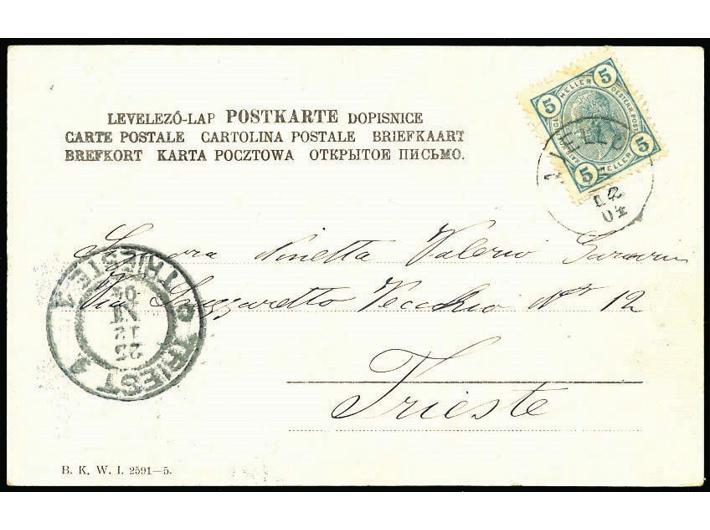 LEVELEZŐ-LAP POSTKARTE DOPISNICE
CARTE POSTALE CARTOLINA POSTALE BRIEFKAART
BREFKORT KARTA POCZTOWA ОТКРЫТОЕ ПИСЬМО.
5 HELLER 5
5 HELLER 5
12
04
Signora Ninetta Valerio
Via Lazzaretto Vecchio No 12
Trieste
TRIEST 1 TRIESTE 1
23
12
B. K. W. I. 2591—5.